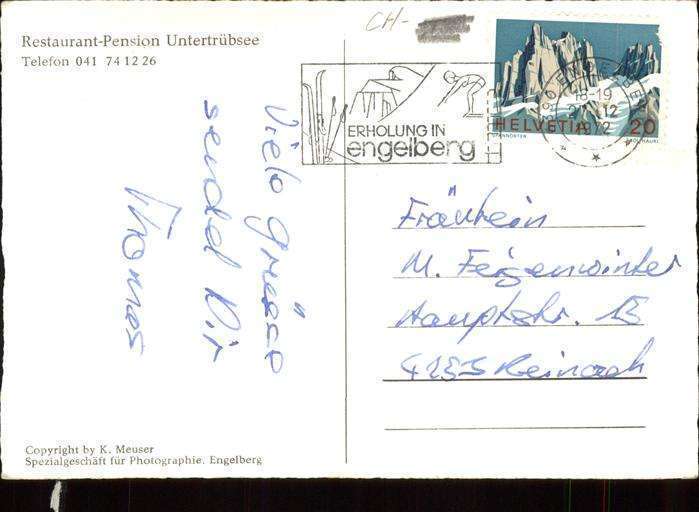 Restaurant-Pension Untertrübsee
Telefon 041 74 12 26
CH-
ERHOLUNG IN
engelberg
18-19
12
1972
HELVETIA
20
Viele Grüsse
sendet Dir
Thomas
Fräulein
M. Feigenwinter
Hauptstr. 15
4153 Reinach
Copyright by K. Meuser
Spezialgeschäft für Photographie. Engelberg